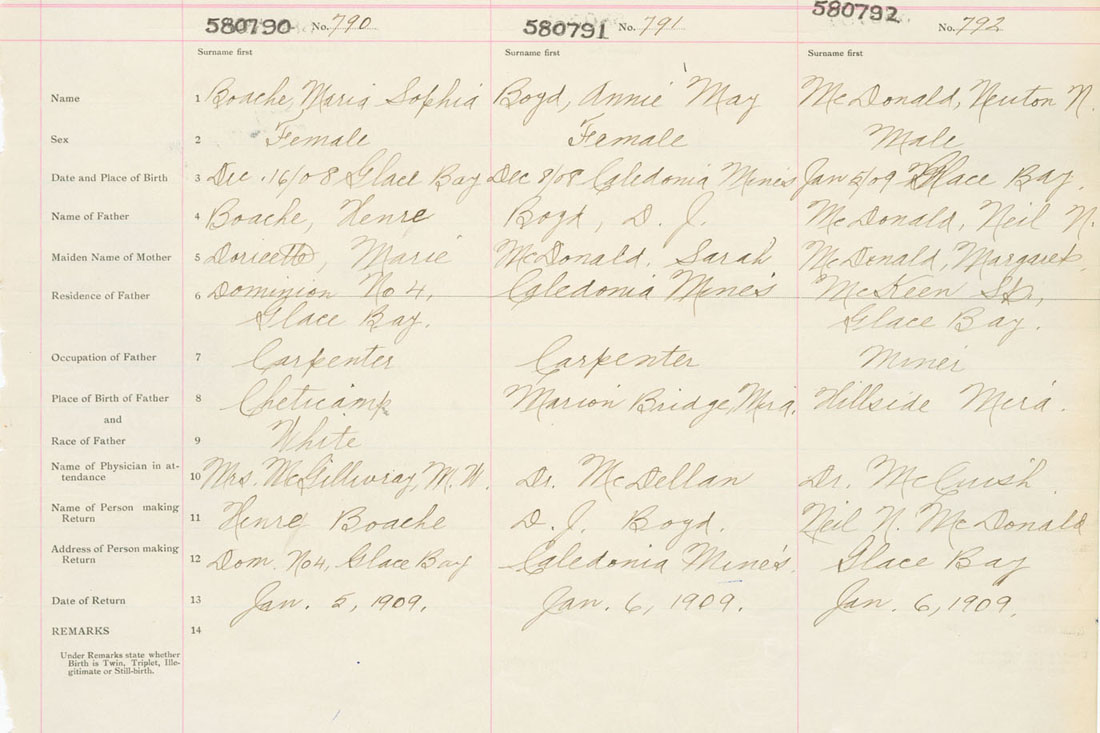 580790 No. 790 580791 No. 791 580792 No. 792
Surname first Surname first Surname first
Name 1 Boache, Maria Sophia Boyd, Annie May McDonald, Neuton N.
Sex 2 Female Female Male
Date and Place of Birth 3 Dec. 16/08 Glace Bay Dec 8/08 Caledonia Mines Jan 5/09 Glace Bay.
Name of Father 4 Boache, Henre Boyd, D. J. McDonald, Neil N.
Maiden Name of Mother 5 Doricette, Marie McDonald, Sarah McDonald, Margaret
Residence of Father 6 Dominion No 4, Caledonia Mines McKeen St.,
Glace Bay. Glace Bay.
Occupation of Father 7 Carpenter Carpenter Miner
Place of Birth of Father 8 Cheticamp Marion Bridge, Mira. Hillside Mira.
and
Race of Father 9 White
Name of Physician in at-
tendance 10 Mrs. McGillivray, M. W. Dr. McDellan Dr. McCuish.
Name of Person making
Return 11 Henre Boache D. J. Boyd. Neil N. McDonald
Address of Person making
Return 12 Dom. No 4, Glace Bay Caledonia Mines. Glace Bay
Date of Return 13 Jan. 5, 1909. Jan. 6, 1909. Jan. 6, 1909.
REMARKS 14
Under Remarks state whether
Birth is Twin, Triplet, Ille-
gitimate or Still-birth.